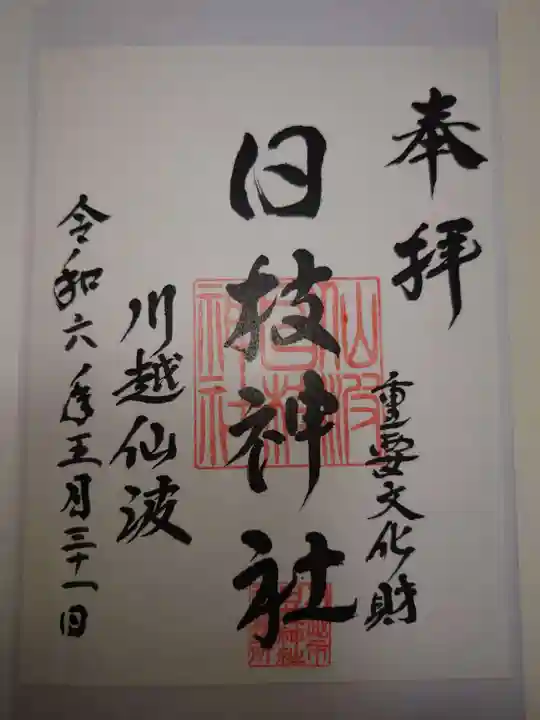 奉拝
重要文化財
日枝神社
仙波
日枝
神社
川越仙波
令和六年五月三十一日